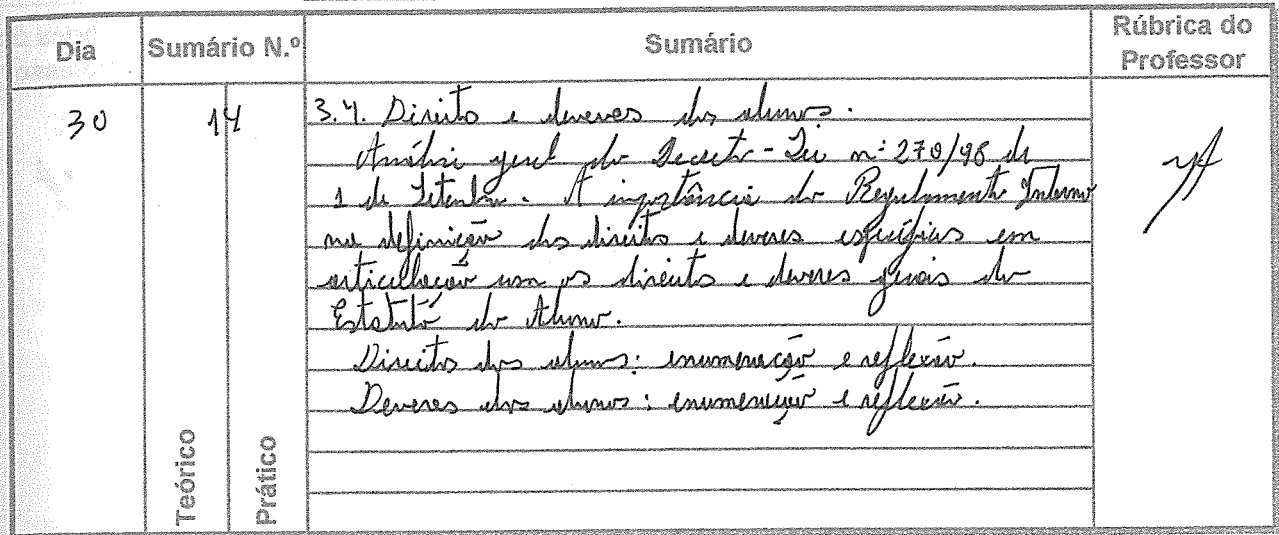 Dia
Sumário N.º
Sumário
Rúbrica do
Professor
30
14
3.4. Direito e deveres dos alunos.
Análise geral do Decreto-Lei nº 270/98 de
1 de Setembro. A importância do Regulamento Interno
na definição dos direitos e deveres específicos em
articulação com os direito e deveres gerais do
Estatuto do Aluno.
Direitos dos alunos: enumeração e reflexão.
Deveres dos alunos: enumeração e reflexão.
Teórico
Prático